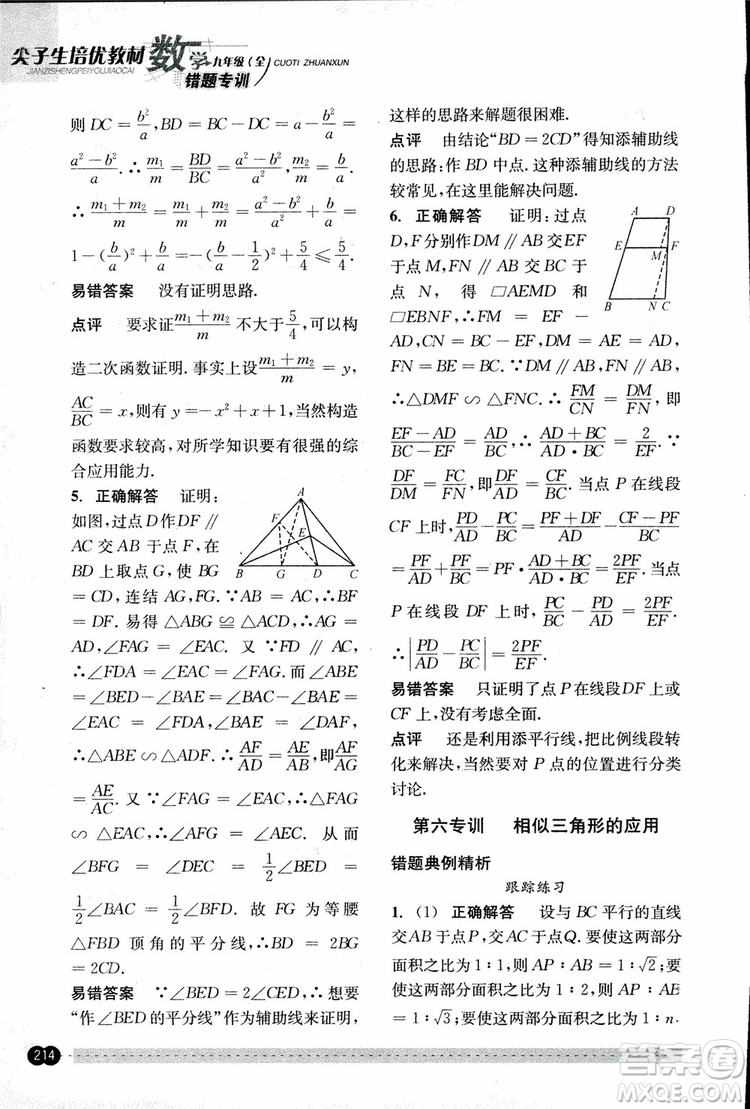 尖子生培优教材
JIANZISHENGPEIYOUJIAOCAI
数学 九年级（全）CUOTI ZHUANXUN
错题专训
则 DC = b²/a, BD = BC − DC = a − b²/a =
(a² − b²)/a. ∴ m₁/m = BD/BC = (a² − b²)/a.
∴ (m₁ + m₂)/m = (a² − b²)/a² + b/a =
1 − (b/a)² + b/a = −(b/a − 1/2)² + 5/4 ≤ 5/4.
易错答案　没有证明思路.
点评　要求证 (m₁ + m₂)/m 不大于 5/4, 可以构
造二次函数证明. 事实上设 (m₁ + m₂)/m = y,
AC/BC = x, 则有 y = −x² + x + 1, 当然构造
函数要求较高, 对所学知识要有很强的综
合应用能力.
5. 正确解答　证明:
如图, 过点 D 作 DF ∥
AC 交 AB 于点 F, 在
BD 上取点 G, 使 BG
= CD, 连结 AG, FG. ∵ AB = AC, ∴ BF
= DF. 易得 △ABG ≌ △ACD. ∴ AG =
AD, ∠FAG = ∠EAC. 又 ∵ FD ∥ AC,
∴ ∠FDA = ∠EAC = ∠FAG. 而 ∠ABE
= ∠BED − ∠BAE = ∠BAC − ∠BAE =
∠EAC = ∠FDA, ∠BAE = ∠DAF,
∴ △ABE ∽ △ADF. ∴ AF/AD = AE/AB, 即 AF/AG =
AE/AC. 又 ∵ ∠FAG = ∠EAC, ∴ △FAG
∽ △EAC, ∴ ∠AFG = ∠AEC. 从而
∠BFG = ∠DEC = 1/2 ∠BED =
1/2 ∠BAC = 1/2 ∠BFD. 故 FG 为等腰
△FBD 顶角的平分线, ∴ BD = 2BG
= 2CD.
易错答案　∵ ∠BED = 2∠CED, ∴ 想要
“作 ∠BED 的平分线”作为辅助线来证明,
A
F
E
B G D C
214
这样的思路来解题很困难.
点评　由结论“BD = 2CD”得知添辅助线
的思路: 作 BD 中点. 这种添辅助线的方法
较常见, 在这里能解决问题.
6. 正确解答　证明: 过点
D, F 分别作 DM ∥ AB 交 EF
于点 M, FN ∥ AB 交 BC 于
点 N, 得 ▱AEMD 和
▱EBNF, ∴ FM = EF −
AD, CN = BC − EF, DM = AE = AD,
FN = BE = BC. ∵ DM ∥ AB, FN ∥ AB,
∴ △DMF ∽ △FNC. ∴ FM/CN = DM/FN, 即
(EF − AD)/(BC − EF) = AD/BC, ∴ (AD + BC)/(AD • BC) = 2/EF. ∵
DF/DM = FC/FN, 即 DF/AD = CF/BC. 当点 P 在线段
CF 上时, PD/AD − PC/BC = (PF + DF)/AD − (CF − PF)/BC
= PF/AD + PF/BC = PF • (AD + BC)/(AD • BC) = 2PF/EF. 当点
P 在线段 DF 上时, PC/BC − PD/AD = 2PF/EF.
∴ |PD/AD − PC/BC| = 2PF/EF.
易错答案　只证明了点 P 在线段 DF 上或
CF 上, 没有考虑全面.
点评　还是利用添平行线, 把比例线段转
化来解决, 当然要对 P 点的位置进行分类
讨论.
A D
E M F
B N C
第六专训　相似三角形的应用
错题典例精析
跟踪练习
1. (1) 正确解答　设与 BC 平行的直线
交 AB 于点 P, 交 AC 于点 Q. 要使这两部分
面积之比为 1 : 1, 则 AP : AB = 1 : √2; 要
使这两部分面积之比为 1 : 1 : 1 : n.
答案圈
MXQE.COM